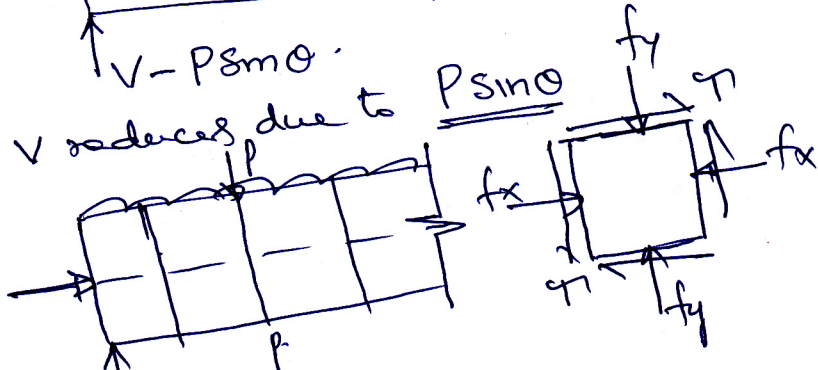 V - P Sinθ.
V reduces due to P sinθ
P
fy
fx
fx
fy
P